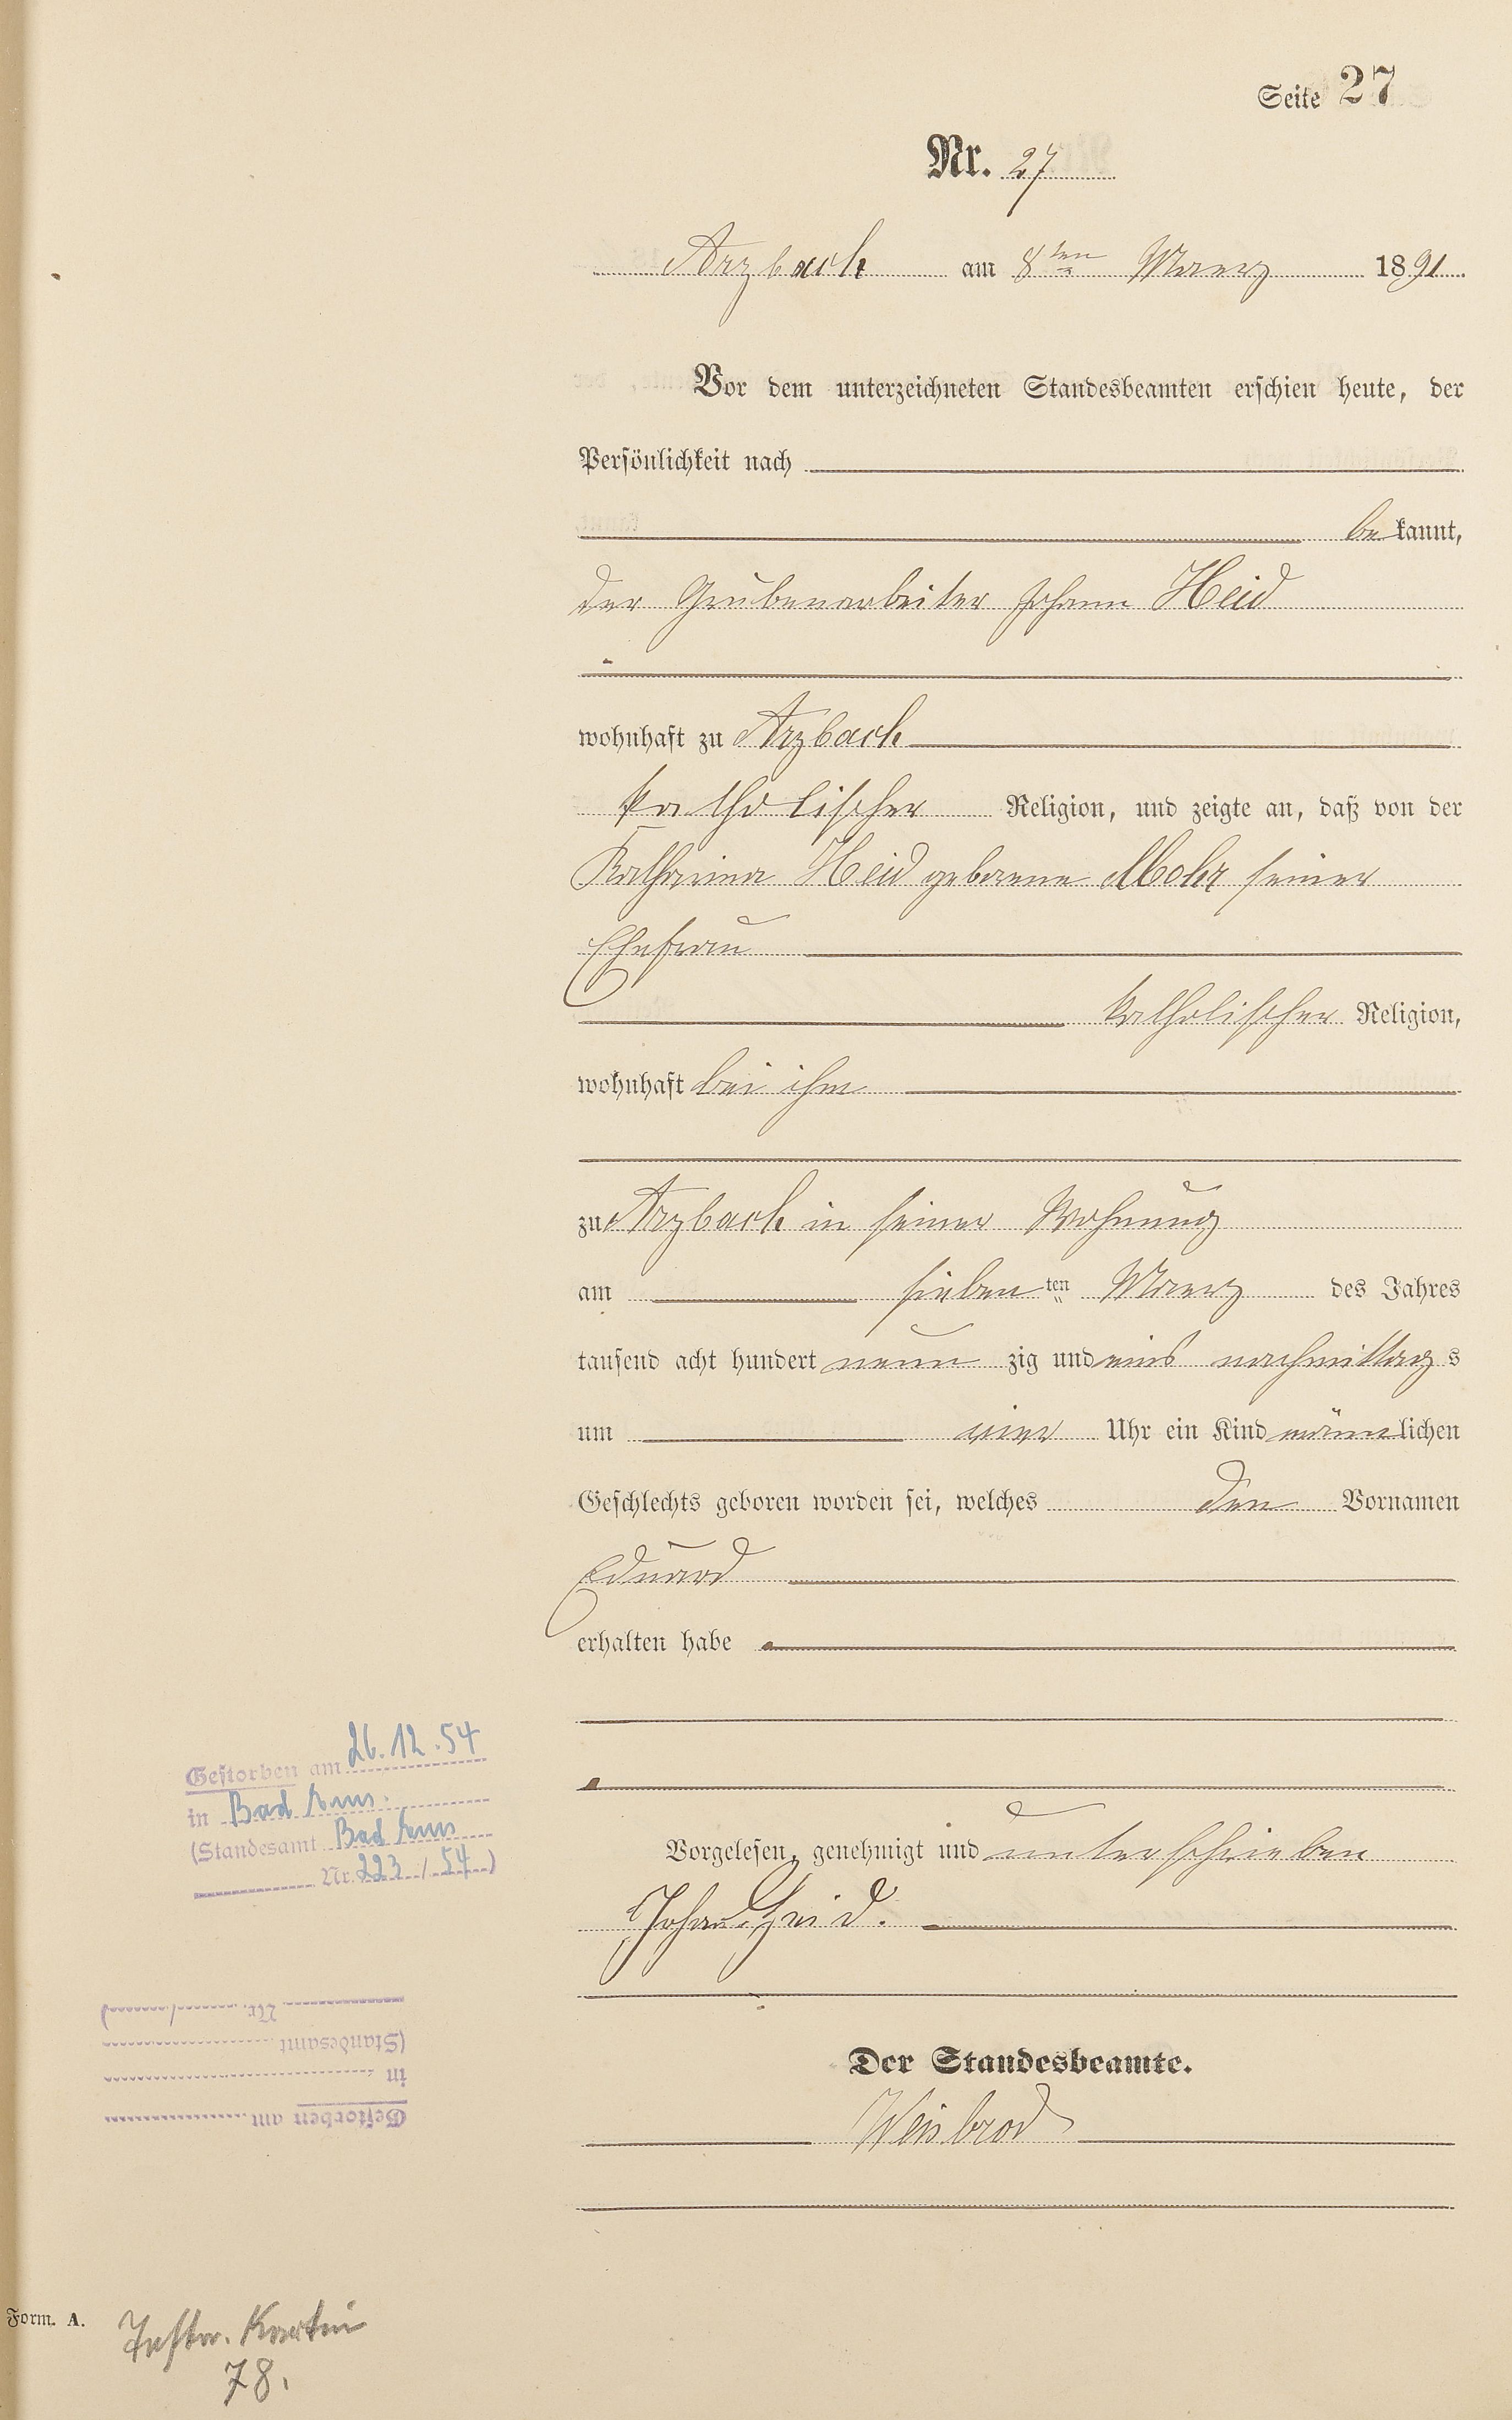 Seite 27
Nr. 27
Arzbach am 8ten Maerz 1891
Vor dem unterzeichneten Standesbeamten erschien heute, der
Persönlichkeit nach
be kannt,
der Grubenarbeiter Johann Heid
wohnhaft zu Arzbach
katholischer Religion, und zeigte an, daß von der
Katharina Heid geborene Mohr seiner
Ehefrau
katholischer Religion,
wohnhaft bei ihm
zu Arzbach in seiner Wohnung
am sieben ten Maerz des Jahres
tausend acht hundert neun zig und eins nachmittag s
um vier Uhr ein Kind männ lichen
Geschlechts geboren worden sei, welches den Vornamen
Eduard
erhalten habe
Gestorben am 26.12.54
in Bad Ems.
(Standesamt Bad Ems
Nr. 223 / 54)
Vorgelesen, genehmigt und unterschrieben
Johann Heid.
Nr. /)
(Standesamt
in
Gestorben am
Der Standesbeamte.
Weisbrod
Form. A.
Kartei
78.